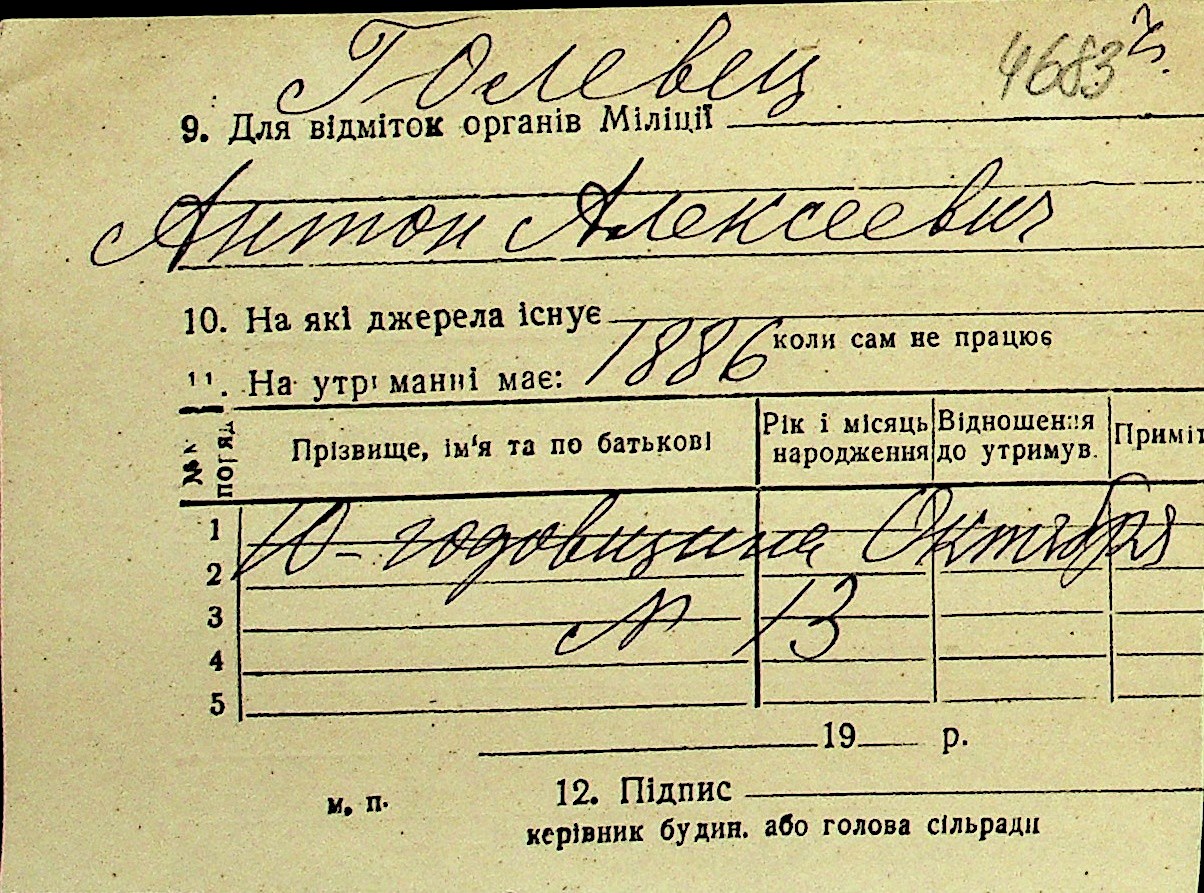 Голевец 4683 ч.
9. Для відміток органів Міліції
Антон Алексеевич
10. На які джерела існує
коли сам не працює
11. На утриманні має: 1886
№ поряд Прізвище, ім'я та по батькові Рік і місяць народження Відношення до утримув. Приміт
1
10-годовщина Октября
2
№ 13
3
4
5
19 р.
м. п. 12. Підпис
керівник будин. або голова сільради